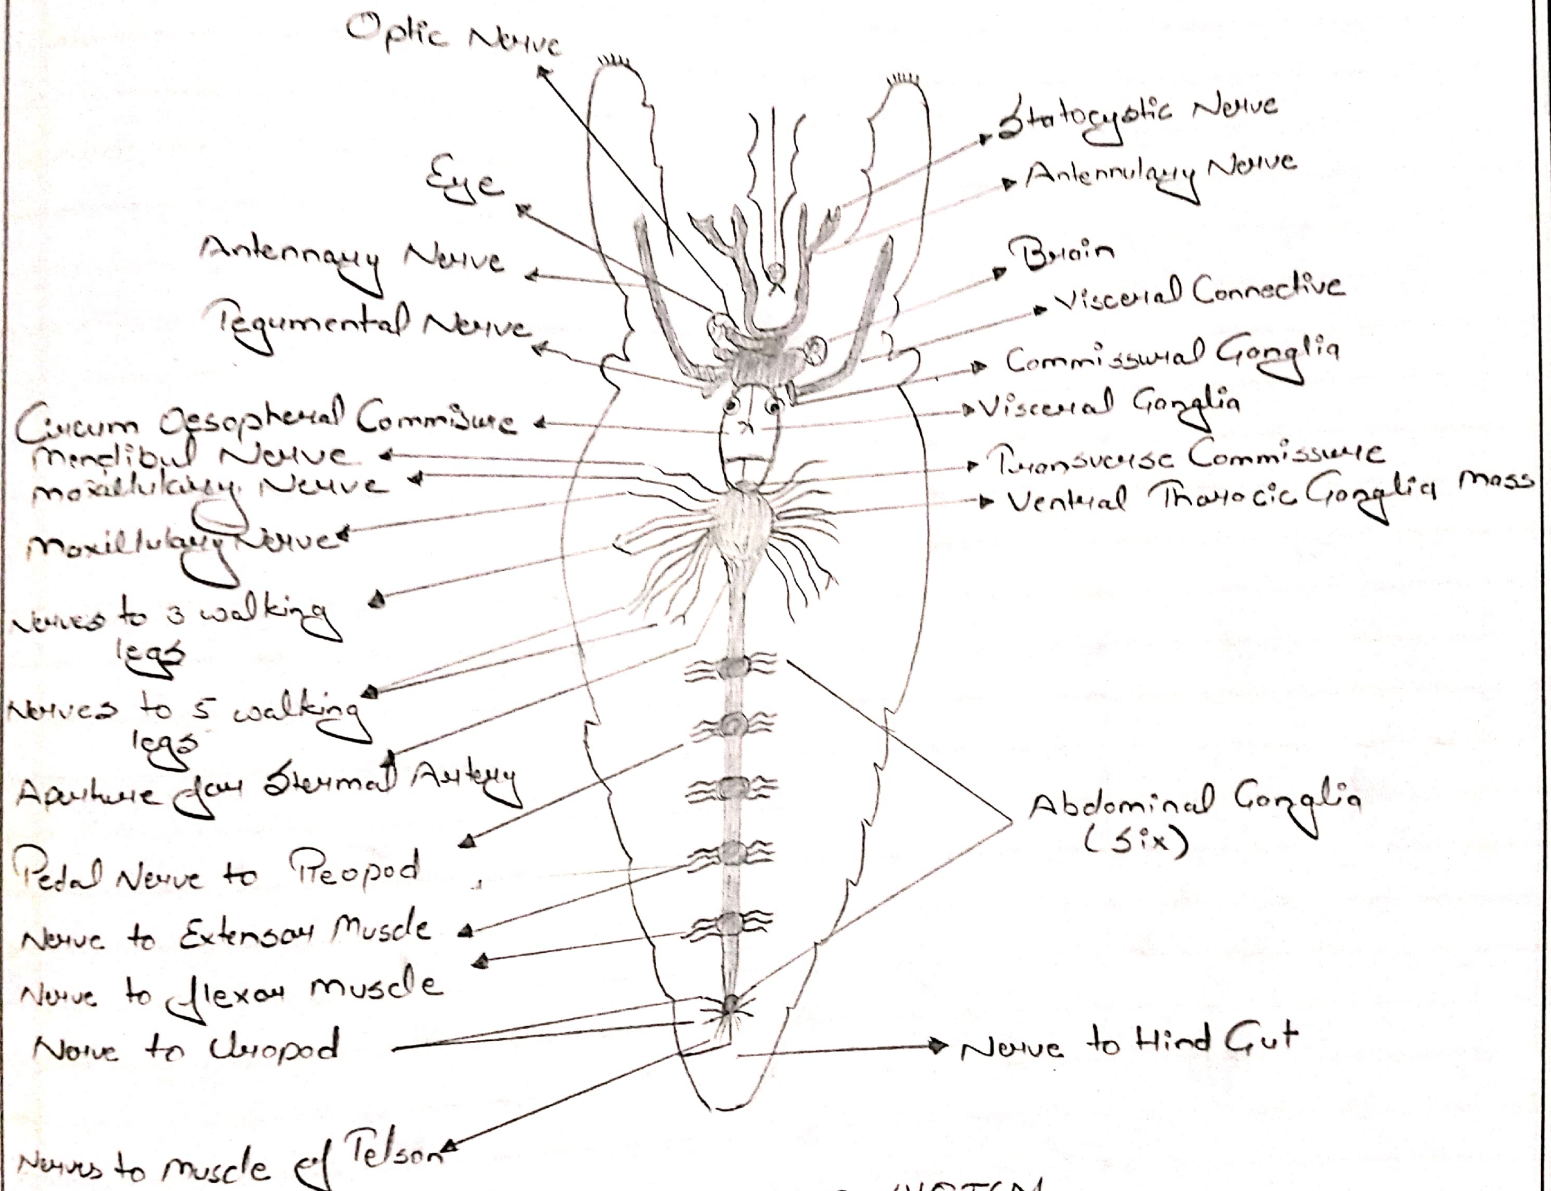 Optic Nerve
Eye
Antennary Nerve
Tegumental Nerve
Circum Oesopheral Commisure
Mendibul Nerve
Moxillulary Nerve
Moxillulary Nerve
Nerves to 3 walking
legs
Nerves to 5 walking
legs
Aperture for Stermal Artery
Pedal Nerve to Pleopod
Nerve to Extensor Muscle
Nerve to flexor muscle
Nerve to Uropod
Nerves to muscle of Telson
Statocystic Nerve
Antennulary Nerve
Brain
Visceral Connective
Commissural Ganglia
Visceral Ganglia
Transverse Commissure
Ventral Tharocic Ganglia Mass
Abdominal Ganglia
(Six)
Nerve to Hind Gut